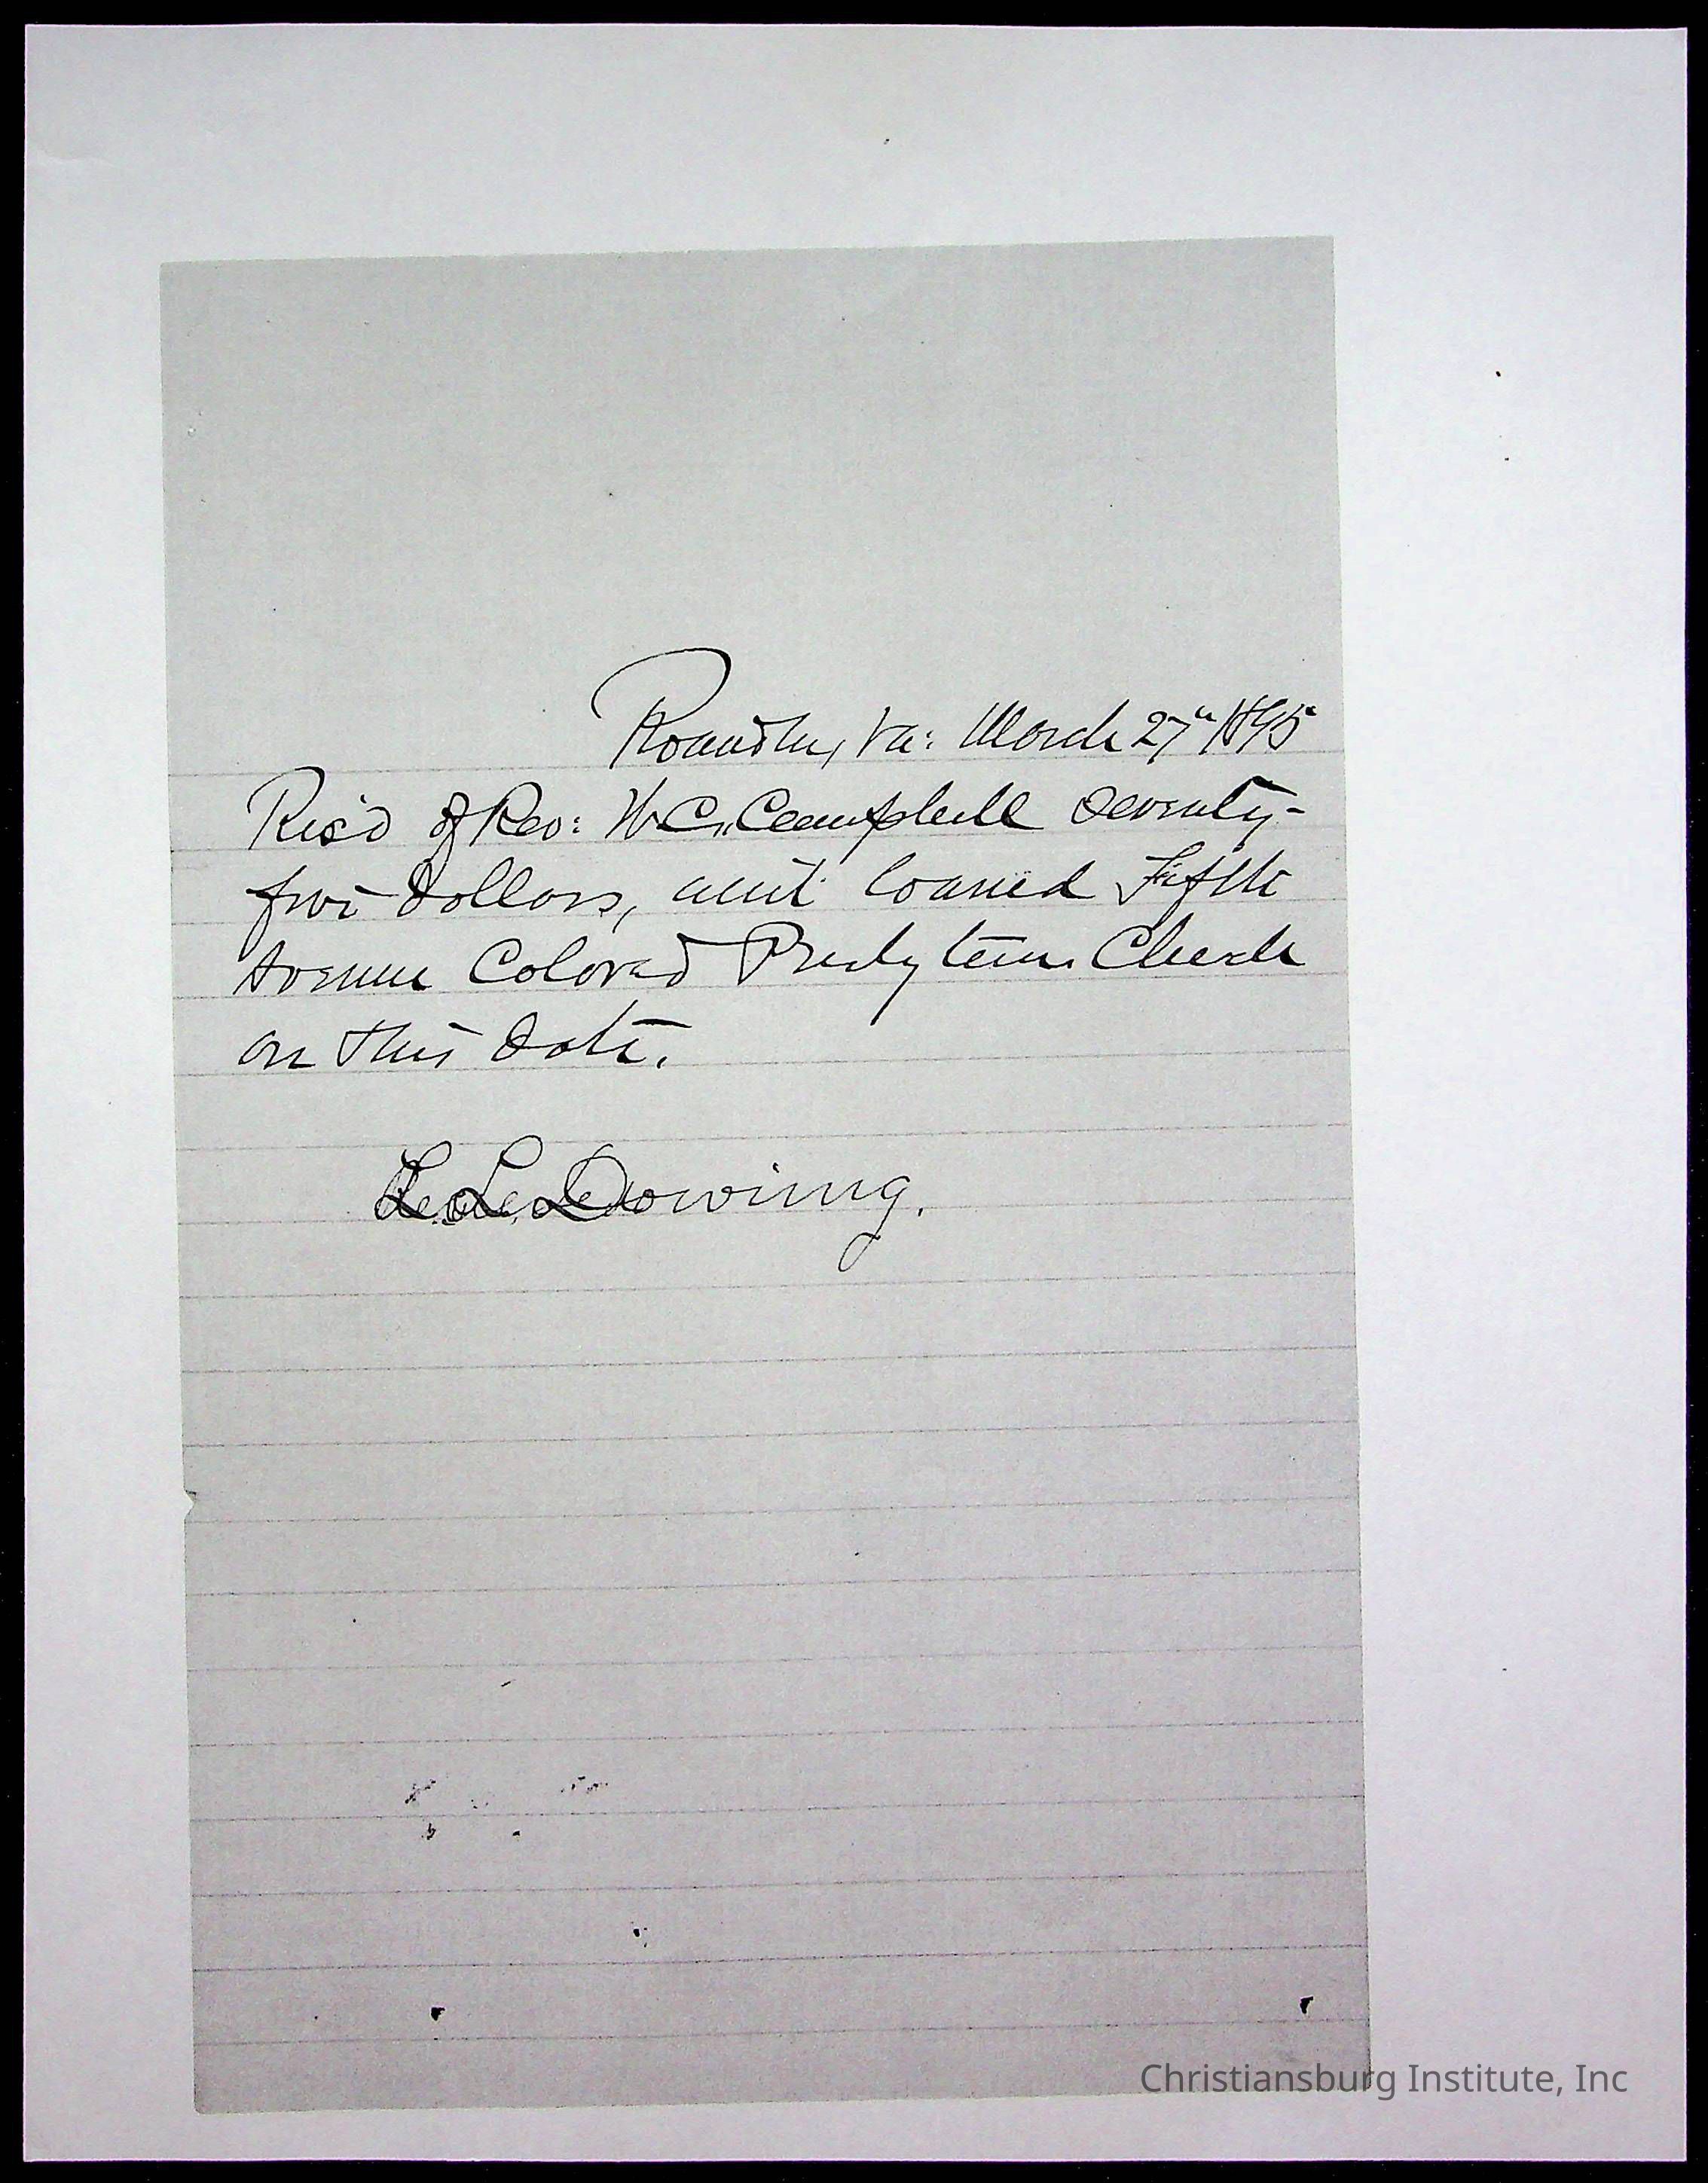 Roanoke, Va: March 27" 1895
Rec'd of Rev: W. C. Campbell Seventy-
five dollars, amt loaned Fifth
Avenue Colored Presbyterian Church
on this date.
L. L. Downing.
Christiansburg Institute, Inc